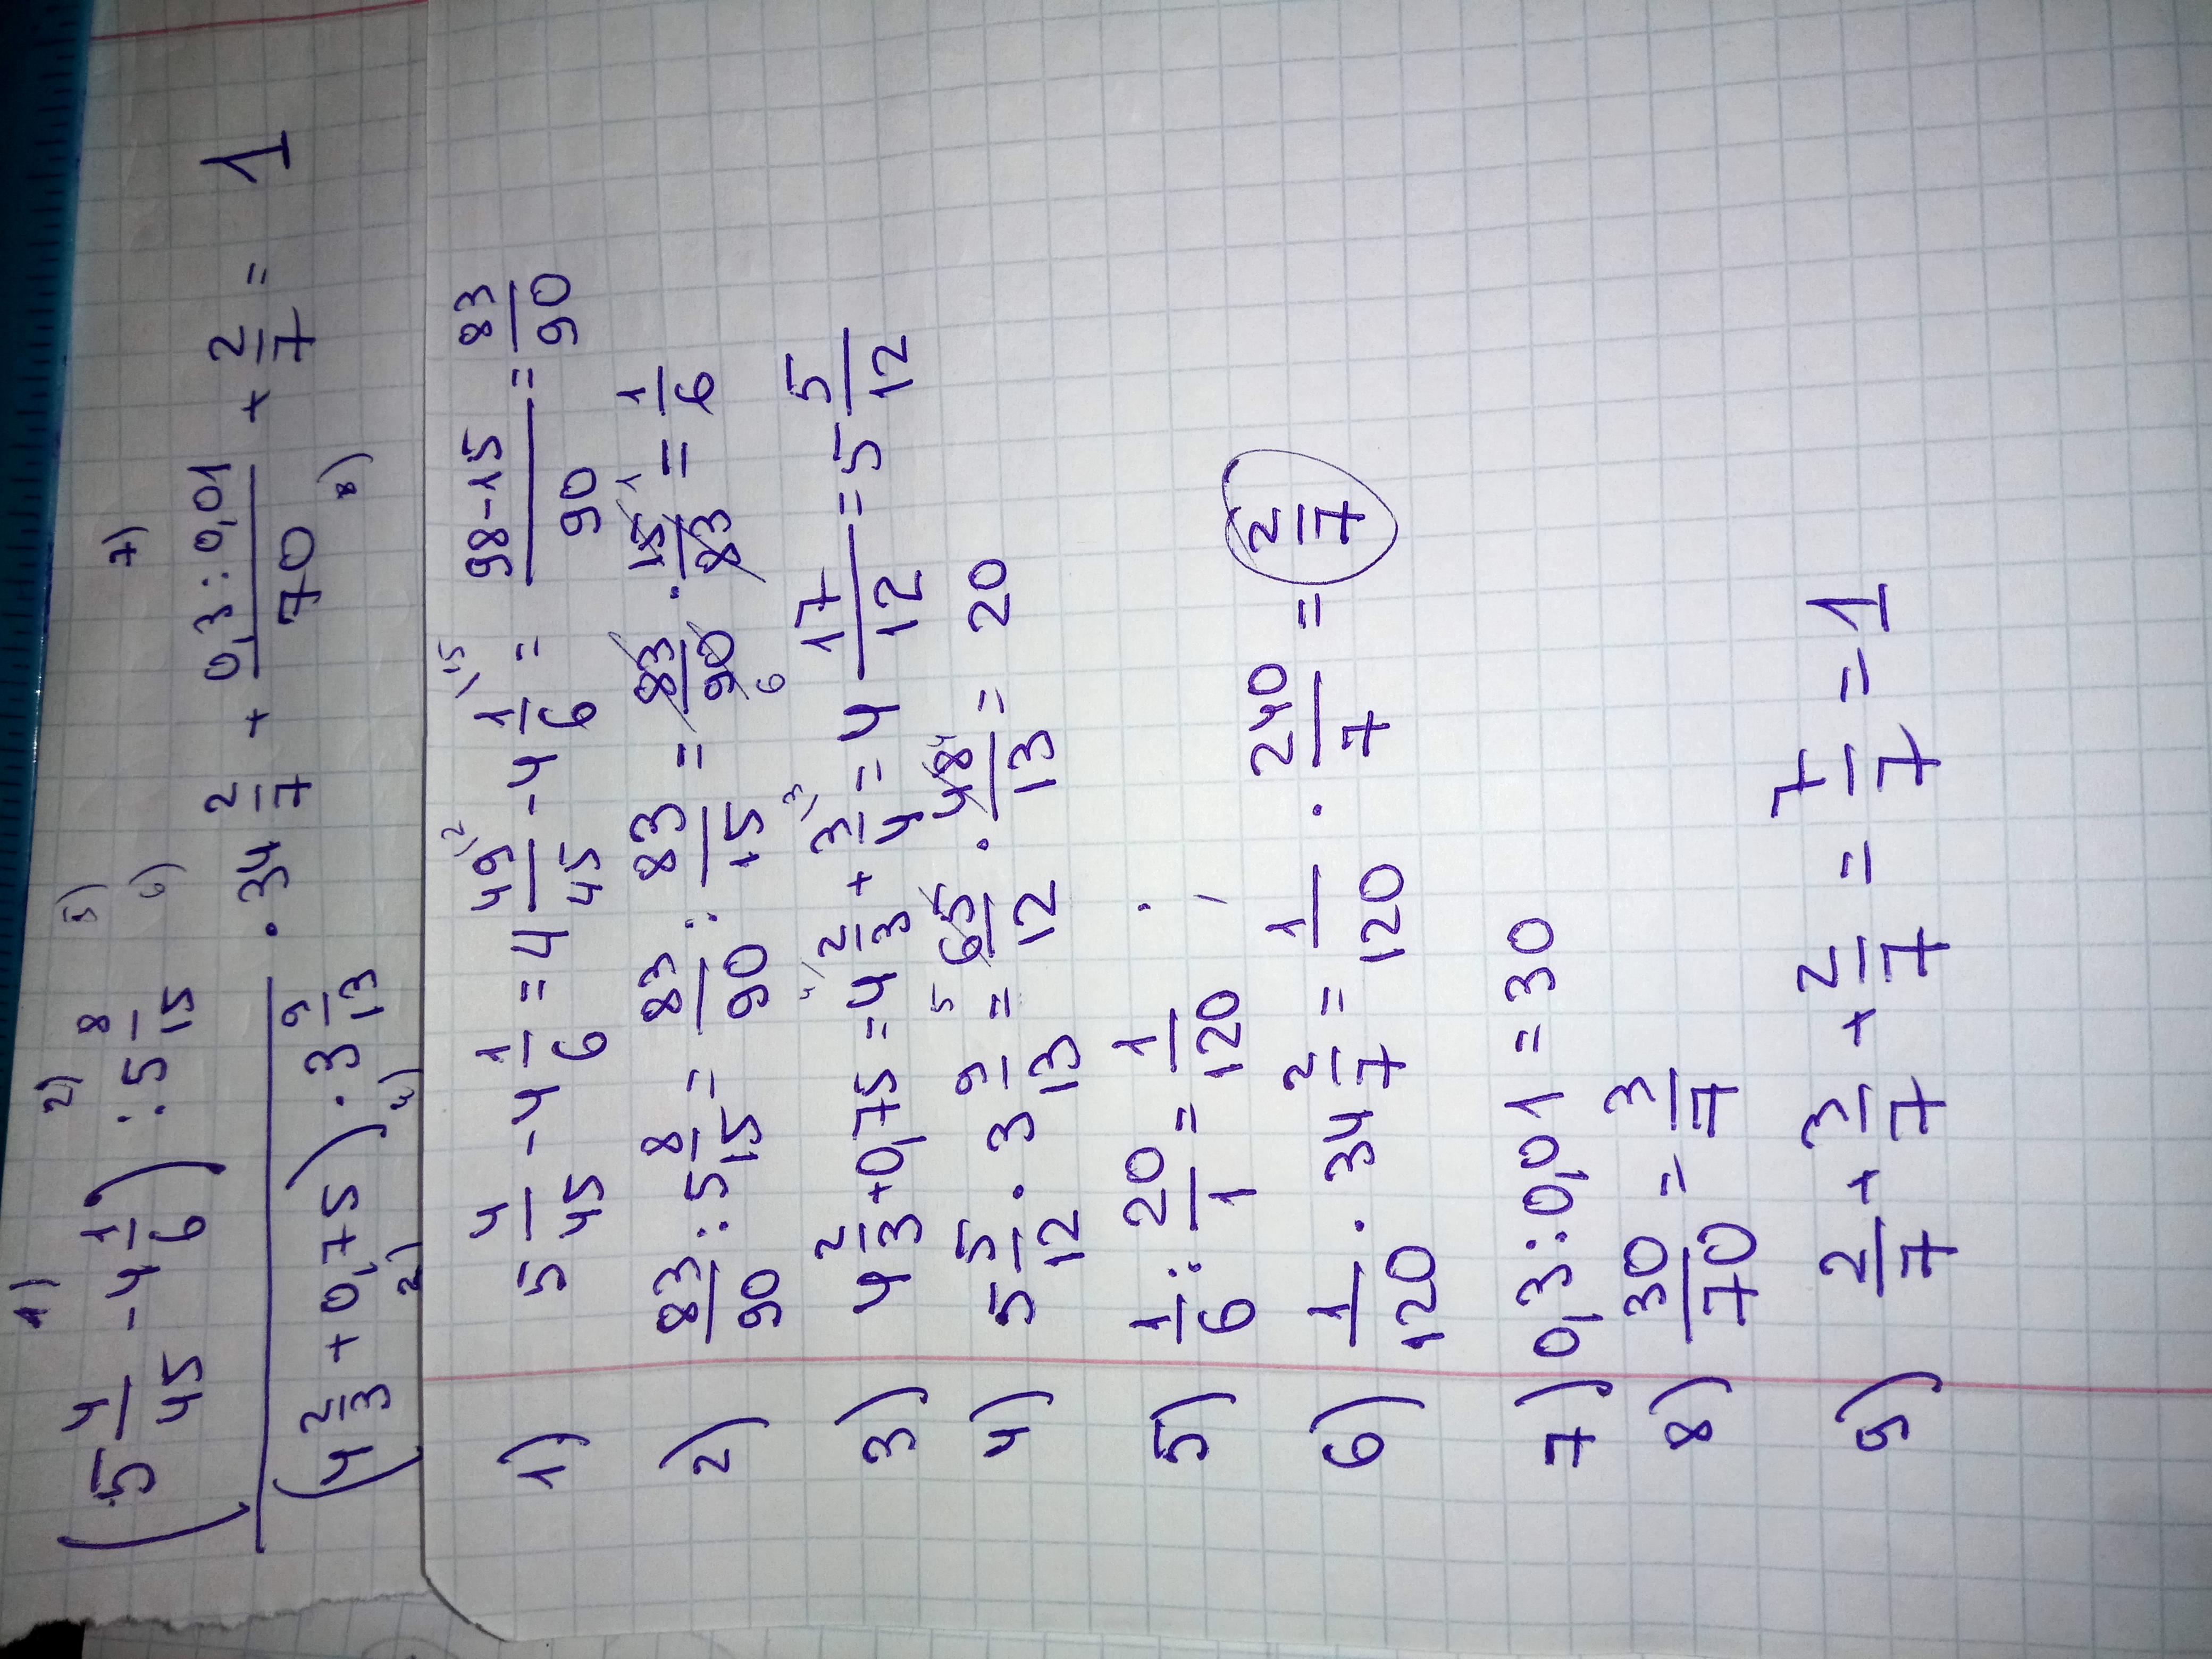 1) 2) 5) 7)
(5 4/45 - 4 1/6) : 5 8/15 6) 0,3 : 0,01
———————————— · 34 2/7 + ———— + 2/7 = 1
(4 2/3 + 0,75) · 3 9/13 70
2) 4) 8)
1) 5 4/45 - 4 1/6 = 4 49/45 - 4 1/6 = 98-15/90 = 83/90
2) 83/90 : 5 8/15 = 83/90 : 83/15 = 83/90 · 15/83 = 1/6
3) 4 2/3 + 0,75 = 4 2/3 + 3/4 = 4 17/12 = 5 5/12
4) 5 5/12 · 3 9/13 = 65/12 · 48/13 = 20
5) 1/6 : 20/1 = 1/120
6) 1/120 · 34 2/7 = 1/120 · 240/7 = 2/7
7) 0,3 : 0,01 = 30
8) 30/70 = 3/7
9) 2/7 + 3/7 + 2/7 = 7/7 = 1